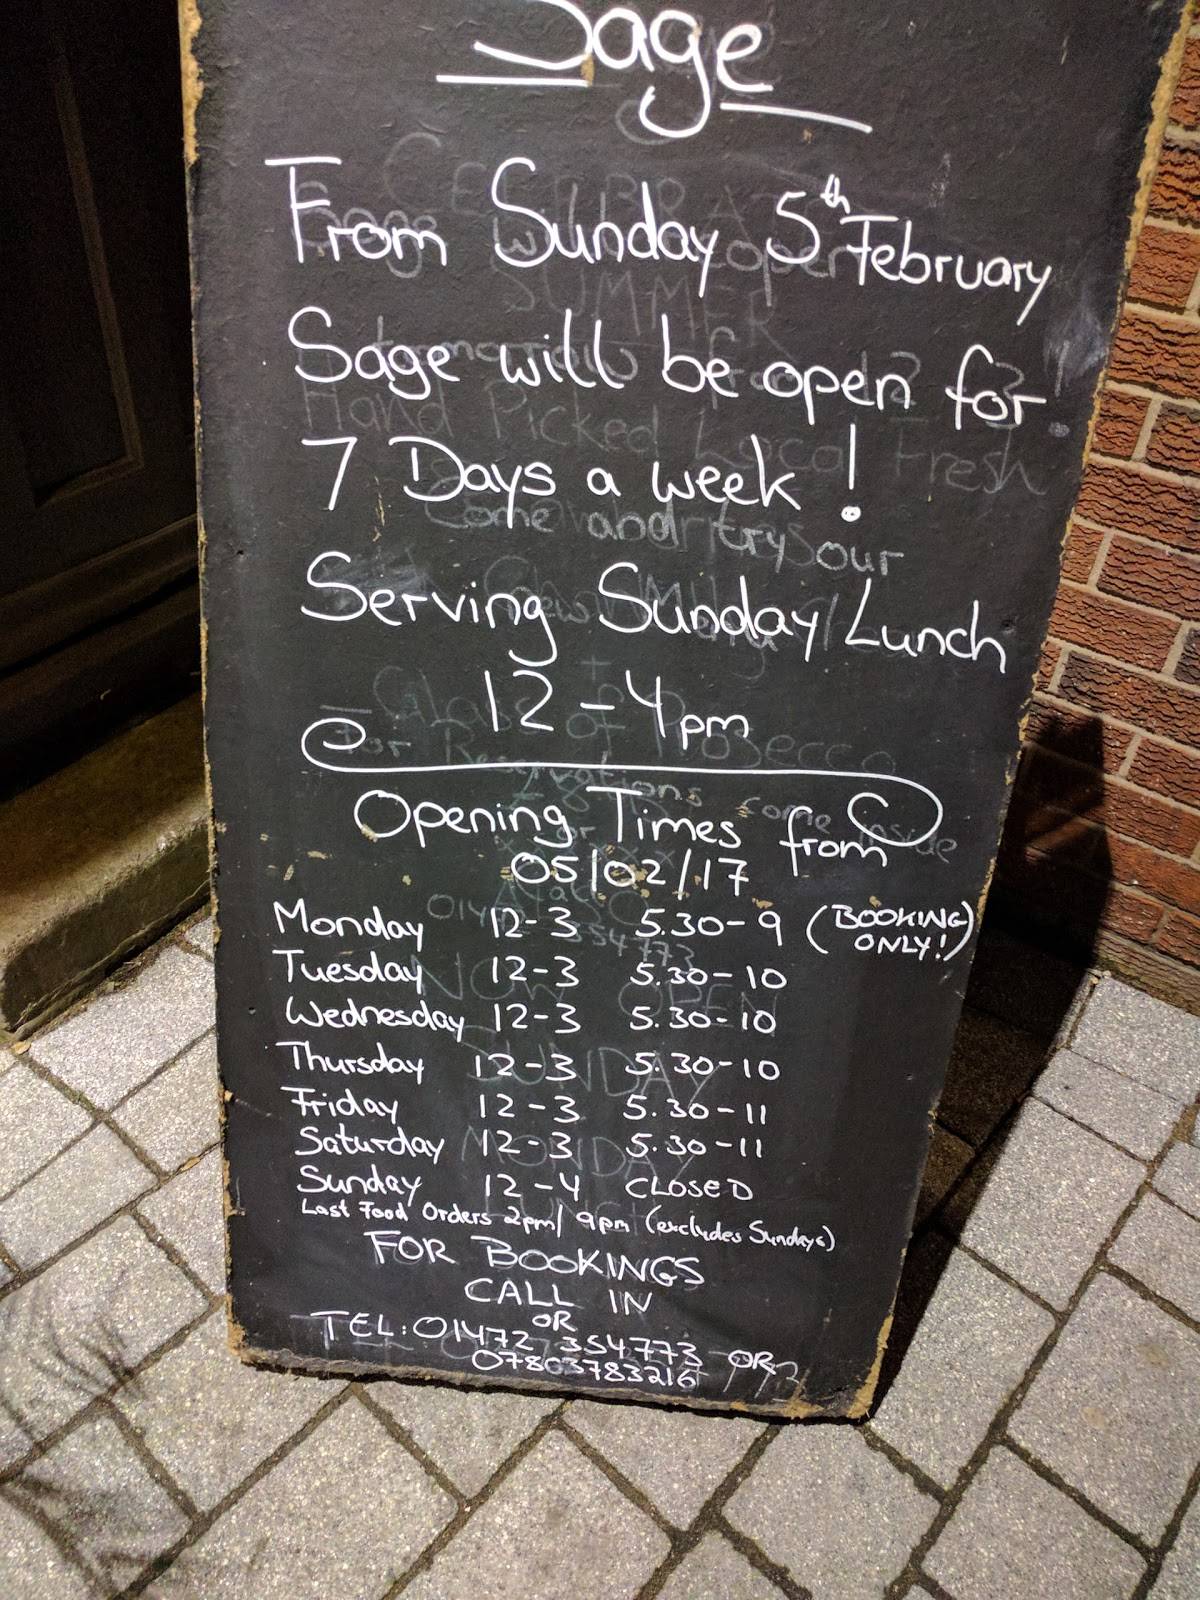 Sage
From Sunday 5th February
Sage will be open for
7 Days a week!
Serving Sunday Lunch
12-4pm
Opening Times from
05/02/17
Monday 12-3 5.30-9 (BOOKING ONLY!)
Tuesday 12-3 5.30-10
Wednesday 12-3 5.30-10
Thursday 12-3 5.30-10
Friday 12-3 5.30-11
Saturday 12-3 5.30-11
Sunday 12-4 CLOSED
Last Food Orders 2pm/9pm (excludes Sundays)
FOR BOOKINGS
CALL IN
OR
TEL: 01472 354773 OR
07803783216